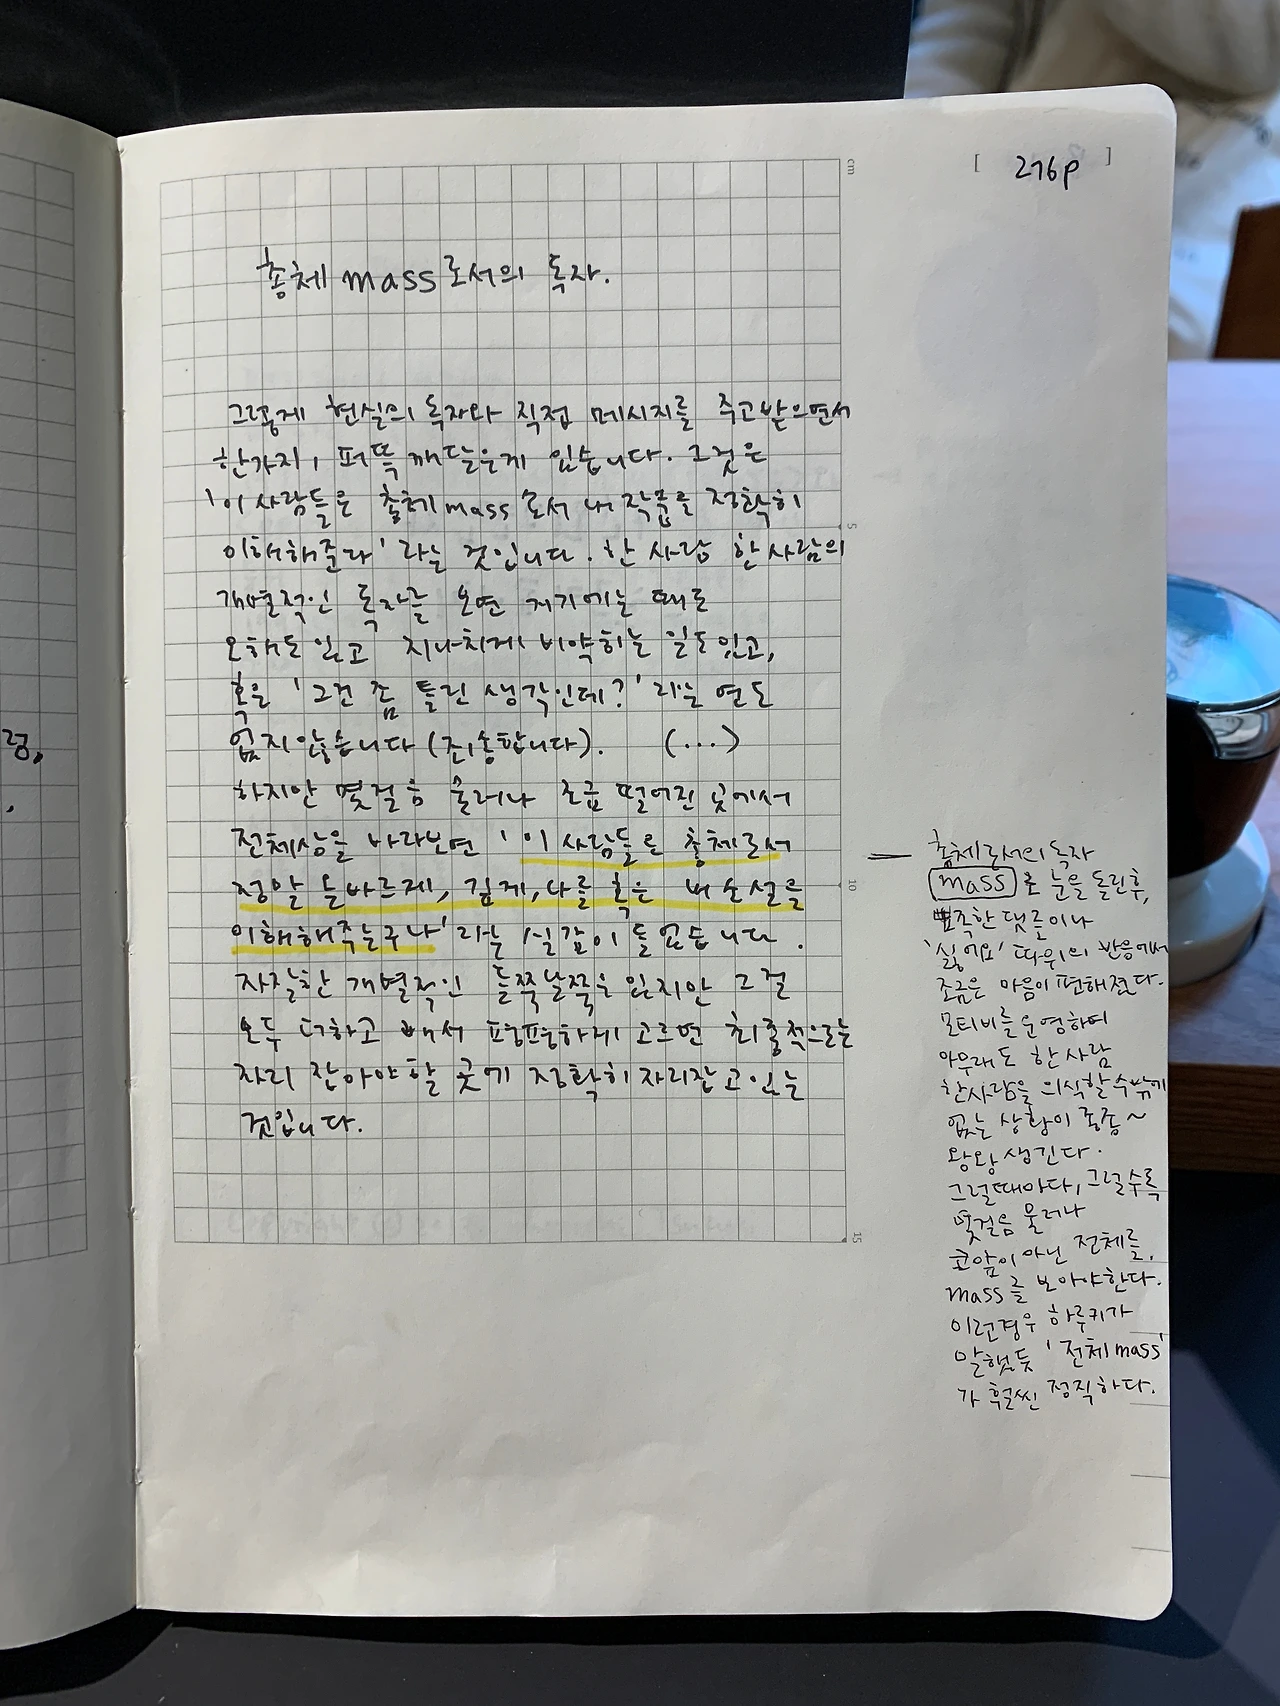 [ 276p ]
총체 mass로서의 독자.
그렇게 현실의 독자와 직접 메시지를 주고받으면서
한가지, 퍼뜩 깨달은게 있습니다. 그것은
'이 사람들은 총체 mass로서 내 작품을 정확히
이해해준다' 라는 것입니다. 한 사람 한 사람의
개별적인 독자를 보면 거기에는 때로
오해도 있고 지나치게 비약하는 일도 있고,
혹은 '그건 좀 틀린 생각인데?' 라는 면도
없지 않습니다 (죄송합니다). (...)
하지만 몇걸음 물러나 조금 떨어진 곳에서
전체상을 바라보면 '이 사람들은 총체로서
정말 올바르게, 깊게, 나를 혹은 내 소설을
이해해주는구나' 라는 실감이 들었습니다.
자잘한 개별적인 들쭉날쭉은 있지만 그걸
모두 더하고 빼서 평평하게 고르면 최종적으로는
자리 잡아야 할 곳에 정확히 자리잡고 있는
것입니다.
총체로서의 독자
mass로 눈을 돌린후,
뾰족한 댓글이나
'싫어요' 따위의 반응에서
조금은 마음이 편해졌다.
모티비를 운영하며
아무래도 한 사람
한사람을 의식할수밖에
없는 상황이 종종~
왕왕 생긴다.
그럴때마다, 그럴수록
몇걸음 물러나
코앞이 아닌 전체를,
mass를 보아야한다.
이런경우 하루키가
말했듯 '전체 mass'
가 훨씬 정직하다.
cm
5
10
15
렁,